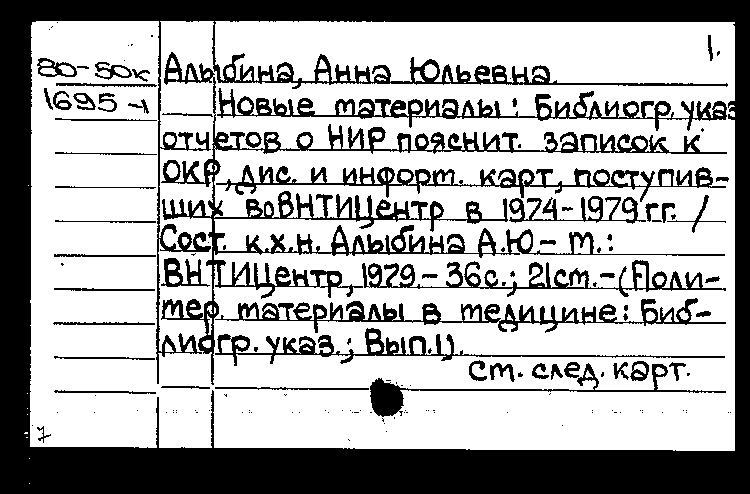 1.
80-50к Алыбина, Анна Юльевна.
1695-1 Новые материалы: Библиогр. указ
отчетов о НИР пояснит. записок к
ОКР, дис. и информ. карт, поступив-
ших во ВНТИЦентр в 1974-1979 гг. /
Сост. к.х.н. Алыбина А.Ю.- М.:
ВНТИЦентр, 1979.- 36с.; 21см.-(Поли-
мер. материалы в медицине: Биб-
лиогр. указ.; Вып.1).
см. след. карт.
7